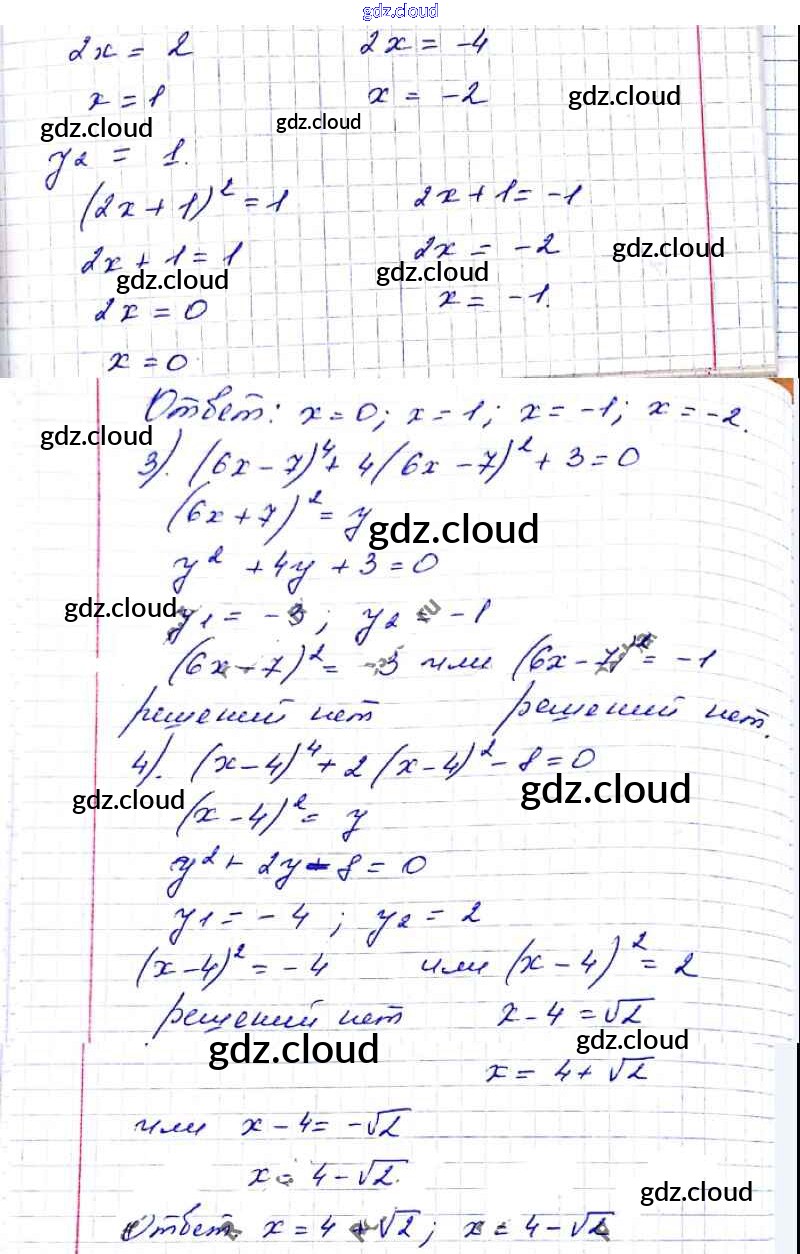 gdz.cloud
2x = 2 2x = -4
x = 1 x = -2 gdz.cloud
gdz.cloud gdz.cloud
y₂ = 1.
(2x + 1)² = 1 2x + 1 = -1
2x + 1 = 1 2x = -2 gdz.cloud
gdz.cloud gdz.cloud
2x = 0 x = -1.
x = 0
Ответ: x = 0; x = 1; x = -1; x = -2.
gdz.cloud
3). (6x - 7)⁴ + 4(6x - 7)² + 3 = 0
(6x + 7)² = y gdz.cloud
y² + 4y + 3 = 0
gdz.cloud
y₁ = -3; y₂ = -1
(6x - 7)² = -3 или (6x - 7)² = -1
решений нет решений нет.
4). (x - 4)⁴ + 2(x - 4)² - 8 = 0
gdz.cloud gdz.cloud
(x - 4)² = y
y² + 2y - 8 = 0
y₁ = -4; y₂ = 2
(x - 4)² = -4 или (x - 4)² = 2
решений нет x - 4 = √2
gdz.cloud gdz.cloud
x = 4 + √2
или x - 4 = -√2
x = 4 - √2.
gdz.cloud
Ответ x = 4 + √2; x = 4 - √2